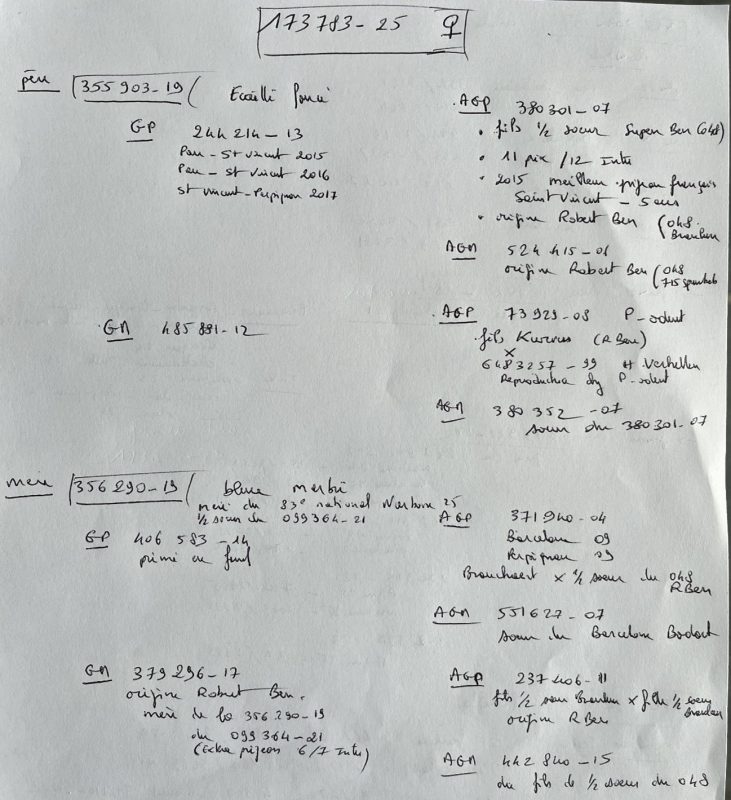 173783-25 ♀
père 355 903-19
GP 244 214-13
Pau - St vincent 2015
Pau - St vincent 2016
St vincent - Perpignan 2017
AGP 380301-07
• fils 1/2 soeur Super Ben (048)
• 11 prix /12 Inter
• 2015 meilleur pigeon français
Saint Vincent - 5 ans
• origine Robert Ben (048
AGM 524 415-
origine Robert Ben (048
GM 485 881-12
AGP 73 929-08
fils Kurvus (R Ben)
x
6483257-99
Reproducteur
AGM 380 352-07
soeur du 380 301-07
mère 356 290-19 bleue
mère du 83e national Narbonne 25
1/2 soeur du 099364-21
GP 406 583-14
primé en fond
AGP 371 940-04
Barcelone 09
Perpignan 09
x 1/2 soeur du 048
R Ben
AGM 551627-07
soeur du Barcelone
GM 379 296-17
origine Robert Ben.
mère de la 356 290-19
du 099 364-21
(Extra pigeon 6/7 Inter)
AGP 237 406-11
fils 1/2 soeur x fille 1/2 soeur
origine R Ben
AGM 442 840-15
du fils de 1/2 soeur du 048